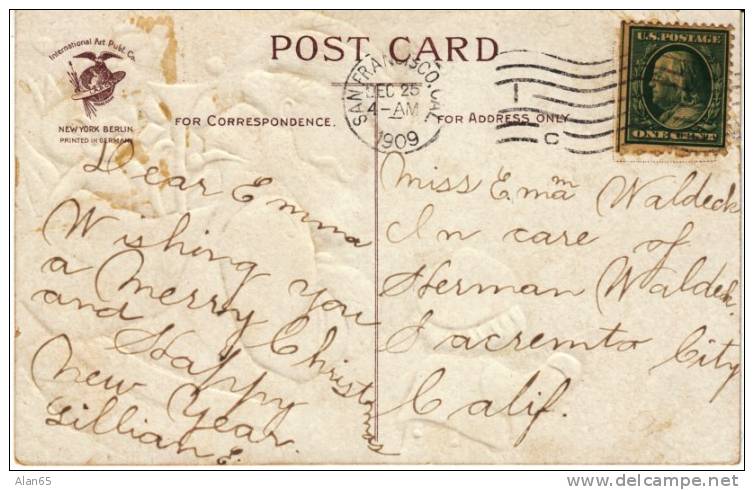 International Art Publ. Co.
NEW YORK BERLIN
PRINTED IN GERMANY
POST CARD
SAN FRANCISCO, CAL.
DEC 25
4-AM
1909
1
C
U.S. POSTAGE
ONE CENT
FOR CORRESPONDENCE.
FOR ADDRESS ONLY
Dear Emma
Wishing you
a Merry Christmas
and Happy
New Year.
Lillian E.
Miss Emma Waldeck
In care of
Herman Waldeck.
Sacremto City
Calif.
Alan65
delcampe.net